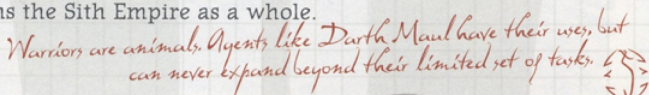 ns the Sith Empire as a whole.
Warriors are animals. Agents like Darth Maul have their uses, but
can never expand beyond their limited set of tasks.